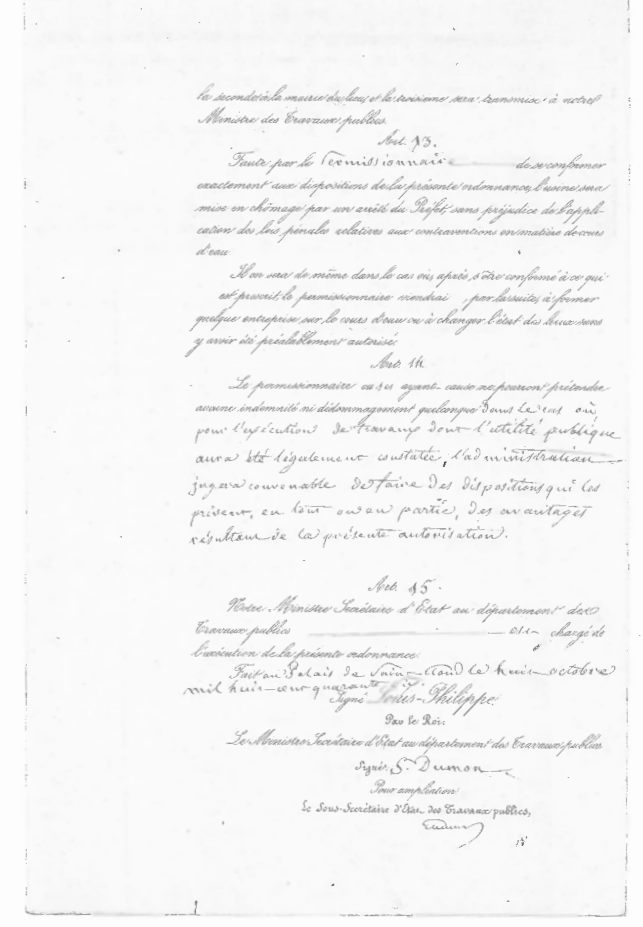 la seconde à la mairie du lieu, et la troisième sera transmise à notre
Ministre des Travaux publics.
Art. 13.
Faute par le Permissionnaire de se conformer
exactement aux dispositions de la présente ordonnance, l'usine sera
mise en chômage par un arrêté du Préfet, sans préjudice de l'appli-
cation des lois pénales relatives aux contraventions en matière de cours
d'eau.
Il en sera de même dans le cas où, après s'être conformé à ce qui
est prescrit, le permissionnaire viendrai , par la suite, à former
quelque entreprise sur le cours d'eau ou à changer l'état des lieux sans
y avoir été préalablement autorisé.
Art. 14.
Le permissionnaire ou ses ayant-cause ne pourront prétendre
aucune indemnité ni dédommagement quelconque dans le cas où,
pour l'exécution de travaux dont l'utilité publique
aura été légalement constatée, l'administration
jugera convenable de faire des dispositions qui les
privent, en tout ou en partie, des avantages
résultant de la présente autorisation.
Art. 15.
Notre Ministre Secrétaire d'Etat au département des
Travaux publics est chargé de
l'exécution de la présente ordonnance.
Fait au Palais de Saint-Cloud le huit octobre
mil huit-cent quarante
Signé Louis-Philippe.
Par le Roi:
Le Ministre Secrétaire d'Etat au département des Travaux publics
Signé: S. Dumon
Pour ampliation
Le Sous-Secrétaire d'Etat des Travaux publics,